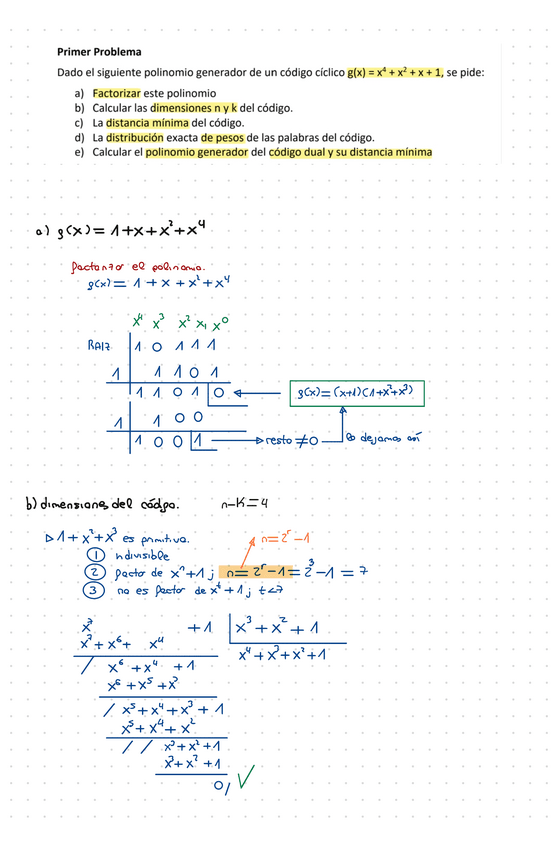 Primer Problema
Dado el siguiente polinomio generador de un código cíclico g(x) = x⁴ + x² + x + 1, se pide:
a) Factorizar este polinomio
b) Calcular las dimensiones n y k del código.
c) La distancia mínima del código.
d) La distribución exacta de pesos de las palabras del código.
e) Calcular el polinomio generador del código dual y su distancia mínima
a) g(x) = 1+x+x²+x⁴
factorizar el polinomio.
g(x) = 1 + x + x² + x⁴
x⁴ x³ x² x₁ x⁰
RAIZ 1 0 1 1 1
1 1 1 0 1
1 1 0 1 0 g(x) = (x+1)(1+x²+x³)
1 1 0 0
1 0 0 1 resto ≠ 0 lo dejamos así
b) dimensiones del código. n-K=4
▷ 1 + x² + x³ es primitiva. n = 2ʳ - 1
1 indivisible
2 factor de xⁿ+1 ; n = 2ʳ - 1 = 2³ - 1 = 7
3 no es factor de xᵗ+1 ; t<7
x⁷ + 1 x³ + x² + 1
x⁷ + x⁶ + x⁴ x⁴ + x³ + x² + 1
/ x⁶ + x⁴ + 1
x⁶ + x⁵ + x³
/ x⁵ + x⁴ + x³ + 1
x⁵ + x⁴ + x²
/ / x³ + x² + 1
x³ + x² + 1
0/ ✓